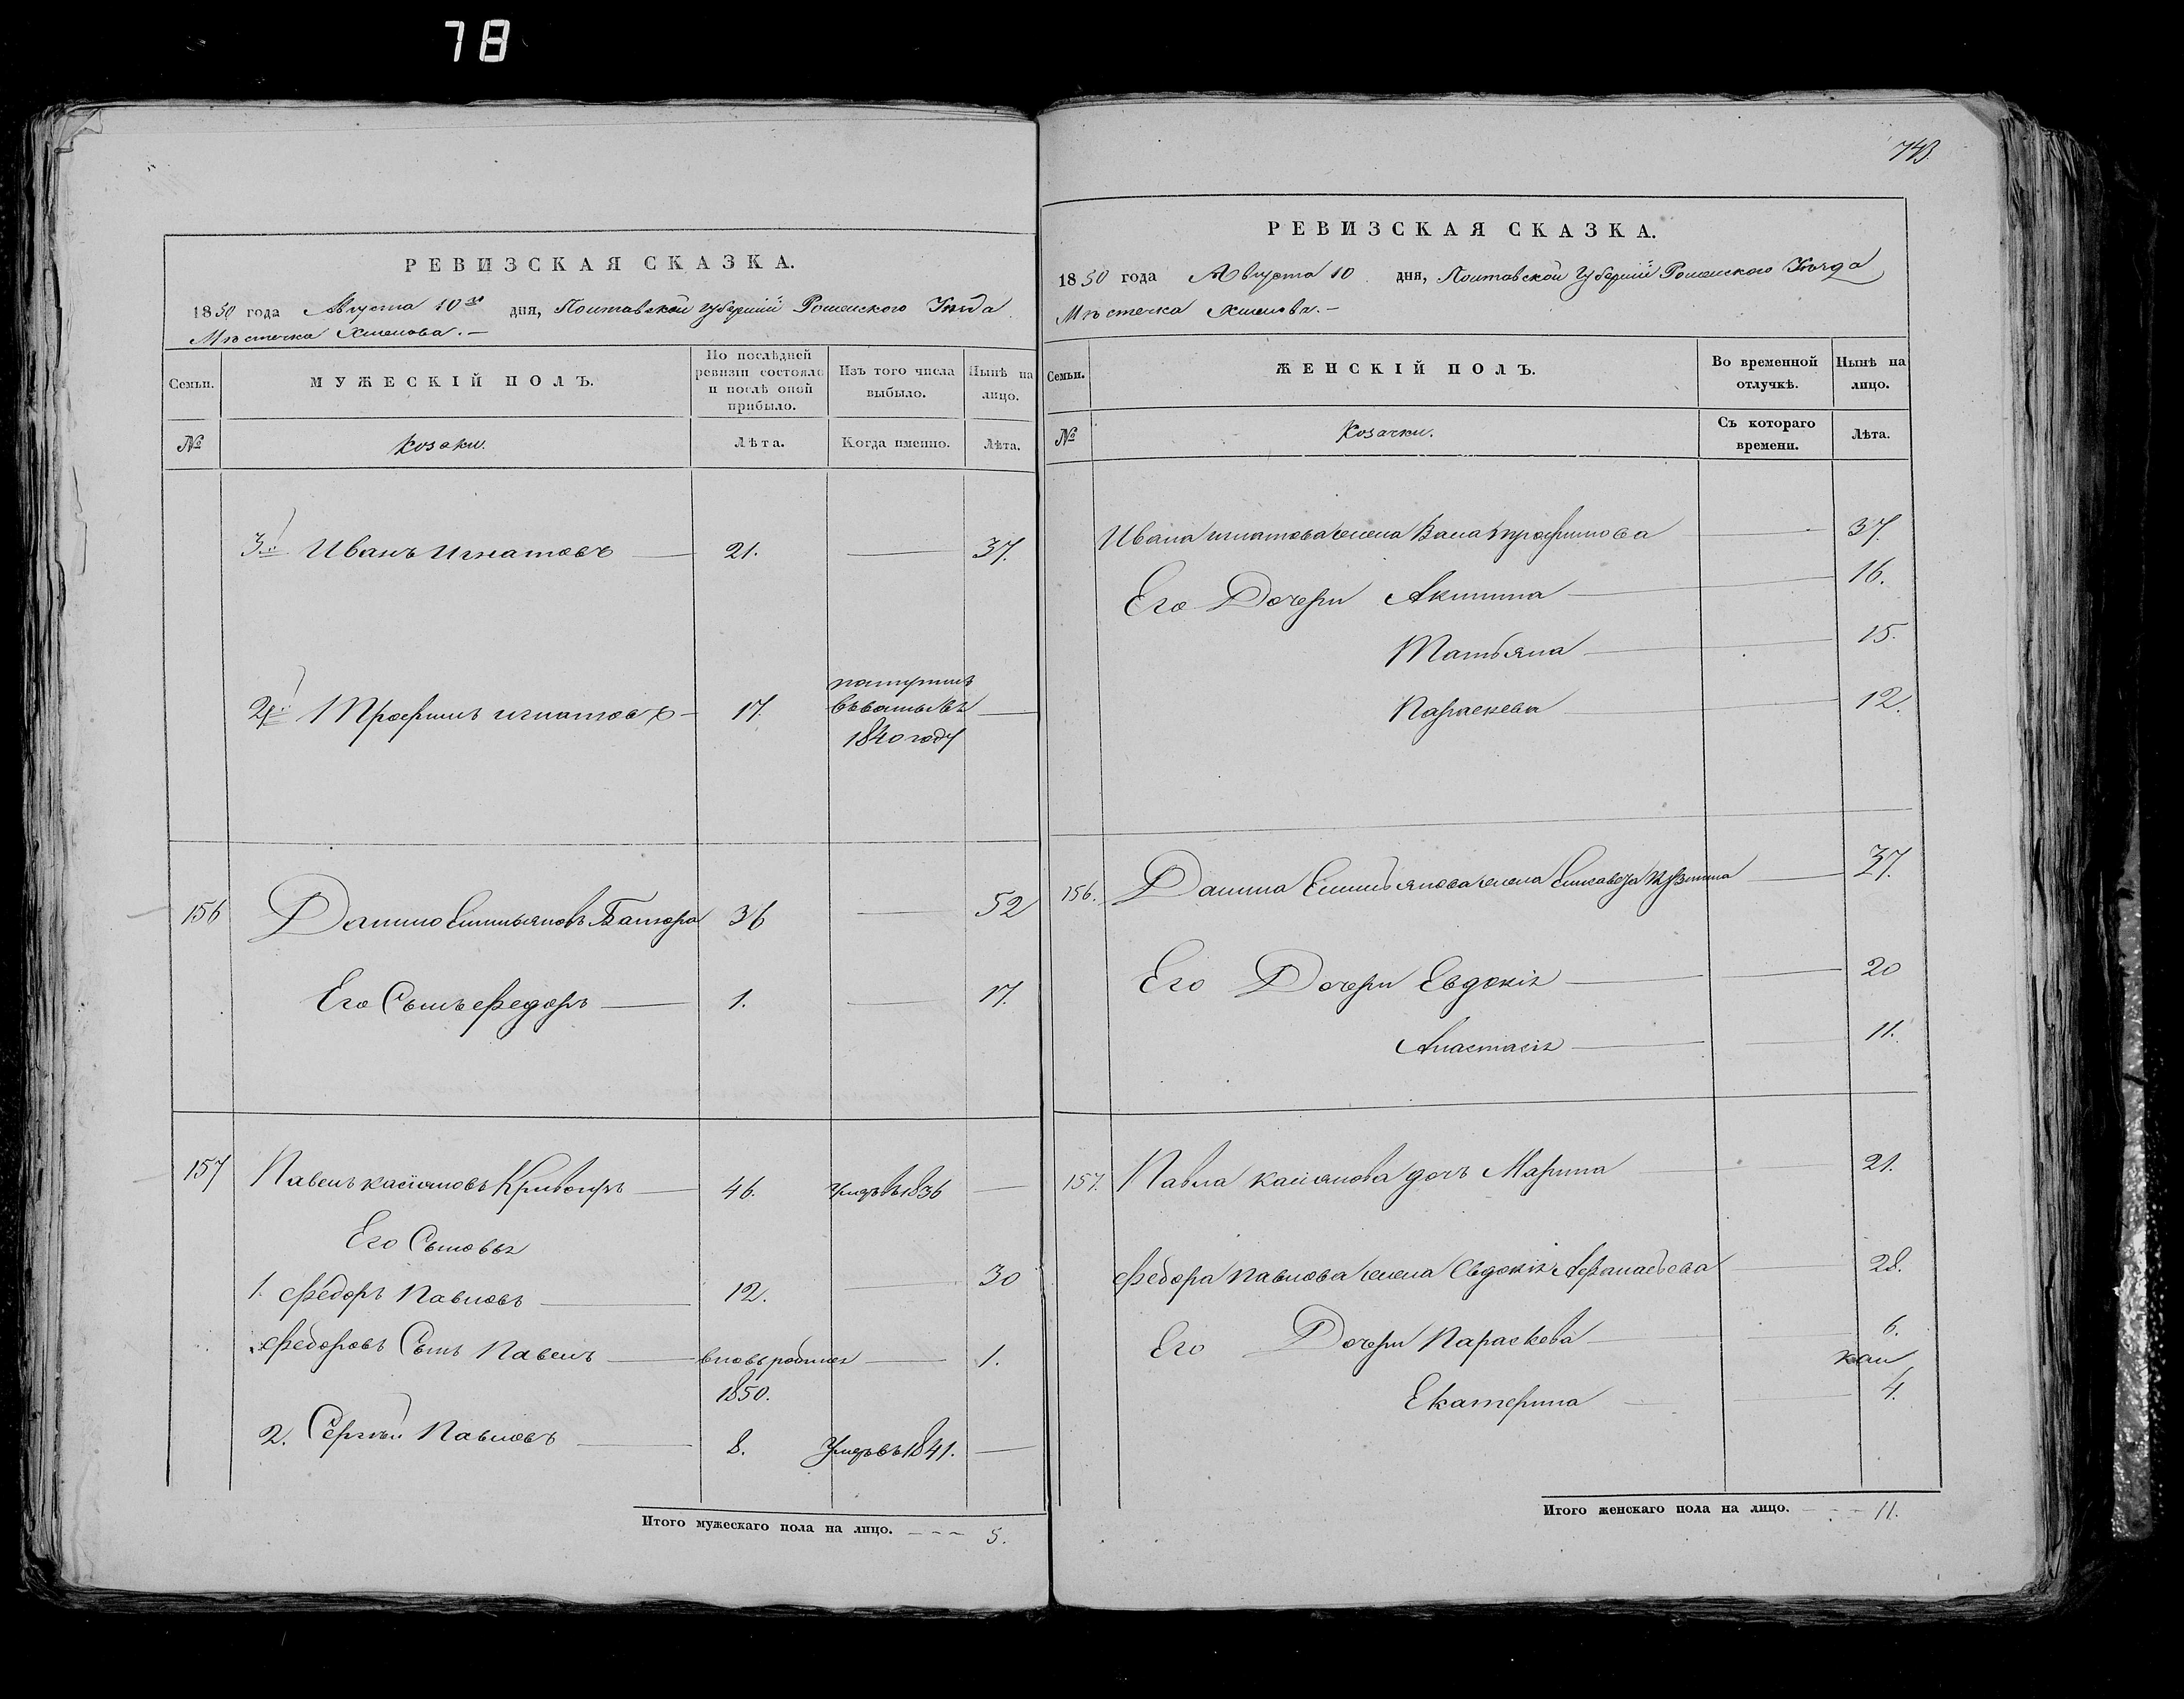 78
РЕВИЗСКАЯ СКАЗКА.
1850 года Августа 10го дня, Полтавской Губерніи Роменского Уезда
Местечка Хмелова.
Семьи.
МУЖЕСКІЙ ПОЛЪ.
По послѣдней ревизіи состояло и послѣ оной прибыло.
Изъ того числа выбыло.
Нынѣ на лицо.
№
Козаки.
Лѣта.
Когда именно.
Лѣта.
3й Иванъ Игнатовъ 21. 37.
Трофимъ Игнатовъ 17. поступилъ
1840 году
156 Данило Емильяновъ 36 52
Его Сынъ Федоръ 1. 17.
157 Павелъ Касіяновъ 46. Умеръ въ 1836
Его Сыновья
1. Федоръ Павловъ 12. 30
Федоровъ Сынъ Павелъ вновь родился 1.
1850.
2. Сергѣй Павловъ 8. Умеръ въ 1841.
Итого мужескаго пола на лицо. 5.
743.
РЕВИЗСКАЯ СКАЗКА.
1850 года Августа 10 дня, Полтавской Губерніи Роменского Уезда
Местечка Хмелова.
Семьи.
ЖЕНСКІЙ ПОЛЪ.
Во временной отлучкѣ.
Нынѣ на лицо.
№
Козачки.
Съ котораго времени.
Лѣта.
Ивана Игнатова жена Трофимова 37.
Его Дочери Акилина 16.
Татьяна 15.
Параскева 12.
156. Данила Емильянова жена Елисавета Кузмина 37.
Его Дочери Евдокія 20
Анастасія 11.
157. Павла Касіянова дочь Марина 21.
Федора Павлова жена Евдокія Афанасьева 28.
Его Дочери Параскева 6.
Екатерина 4.
Итого женскаго пола на лицо. 11.